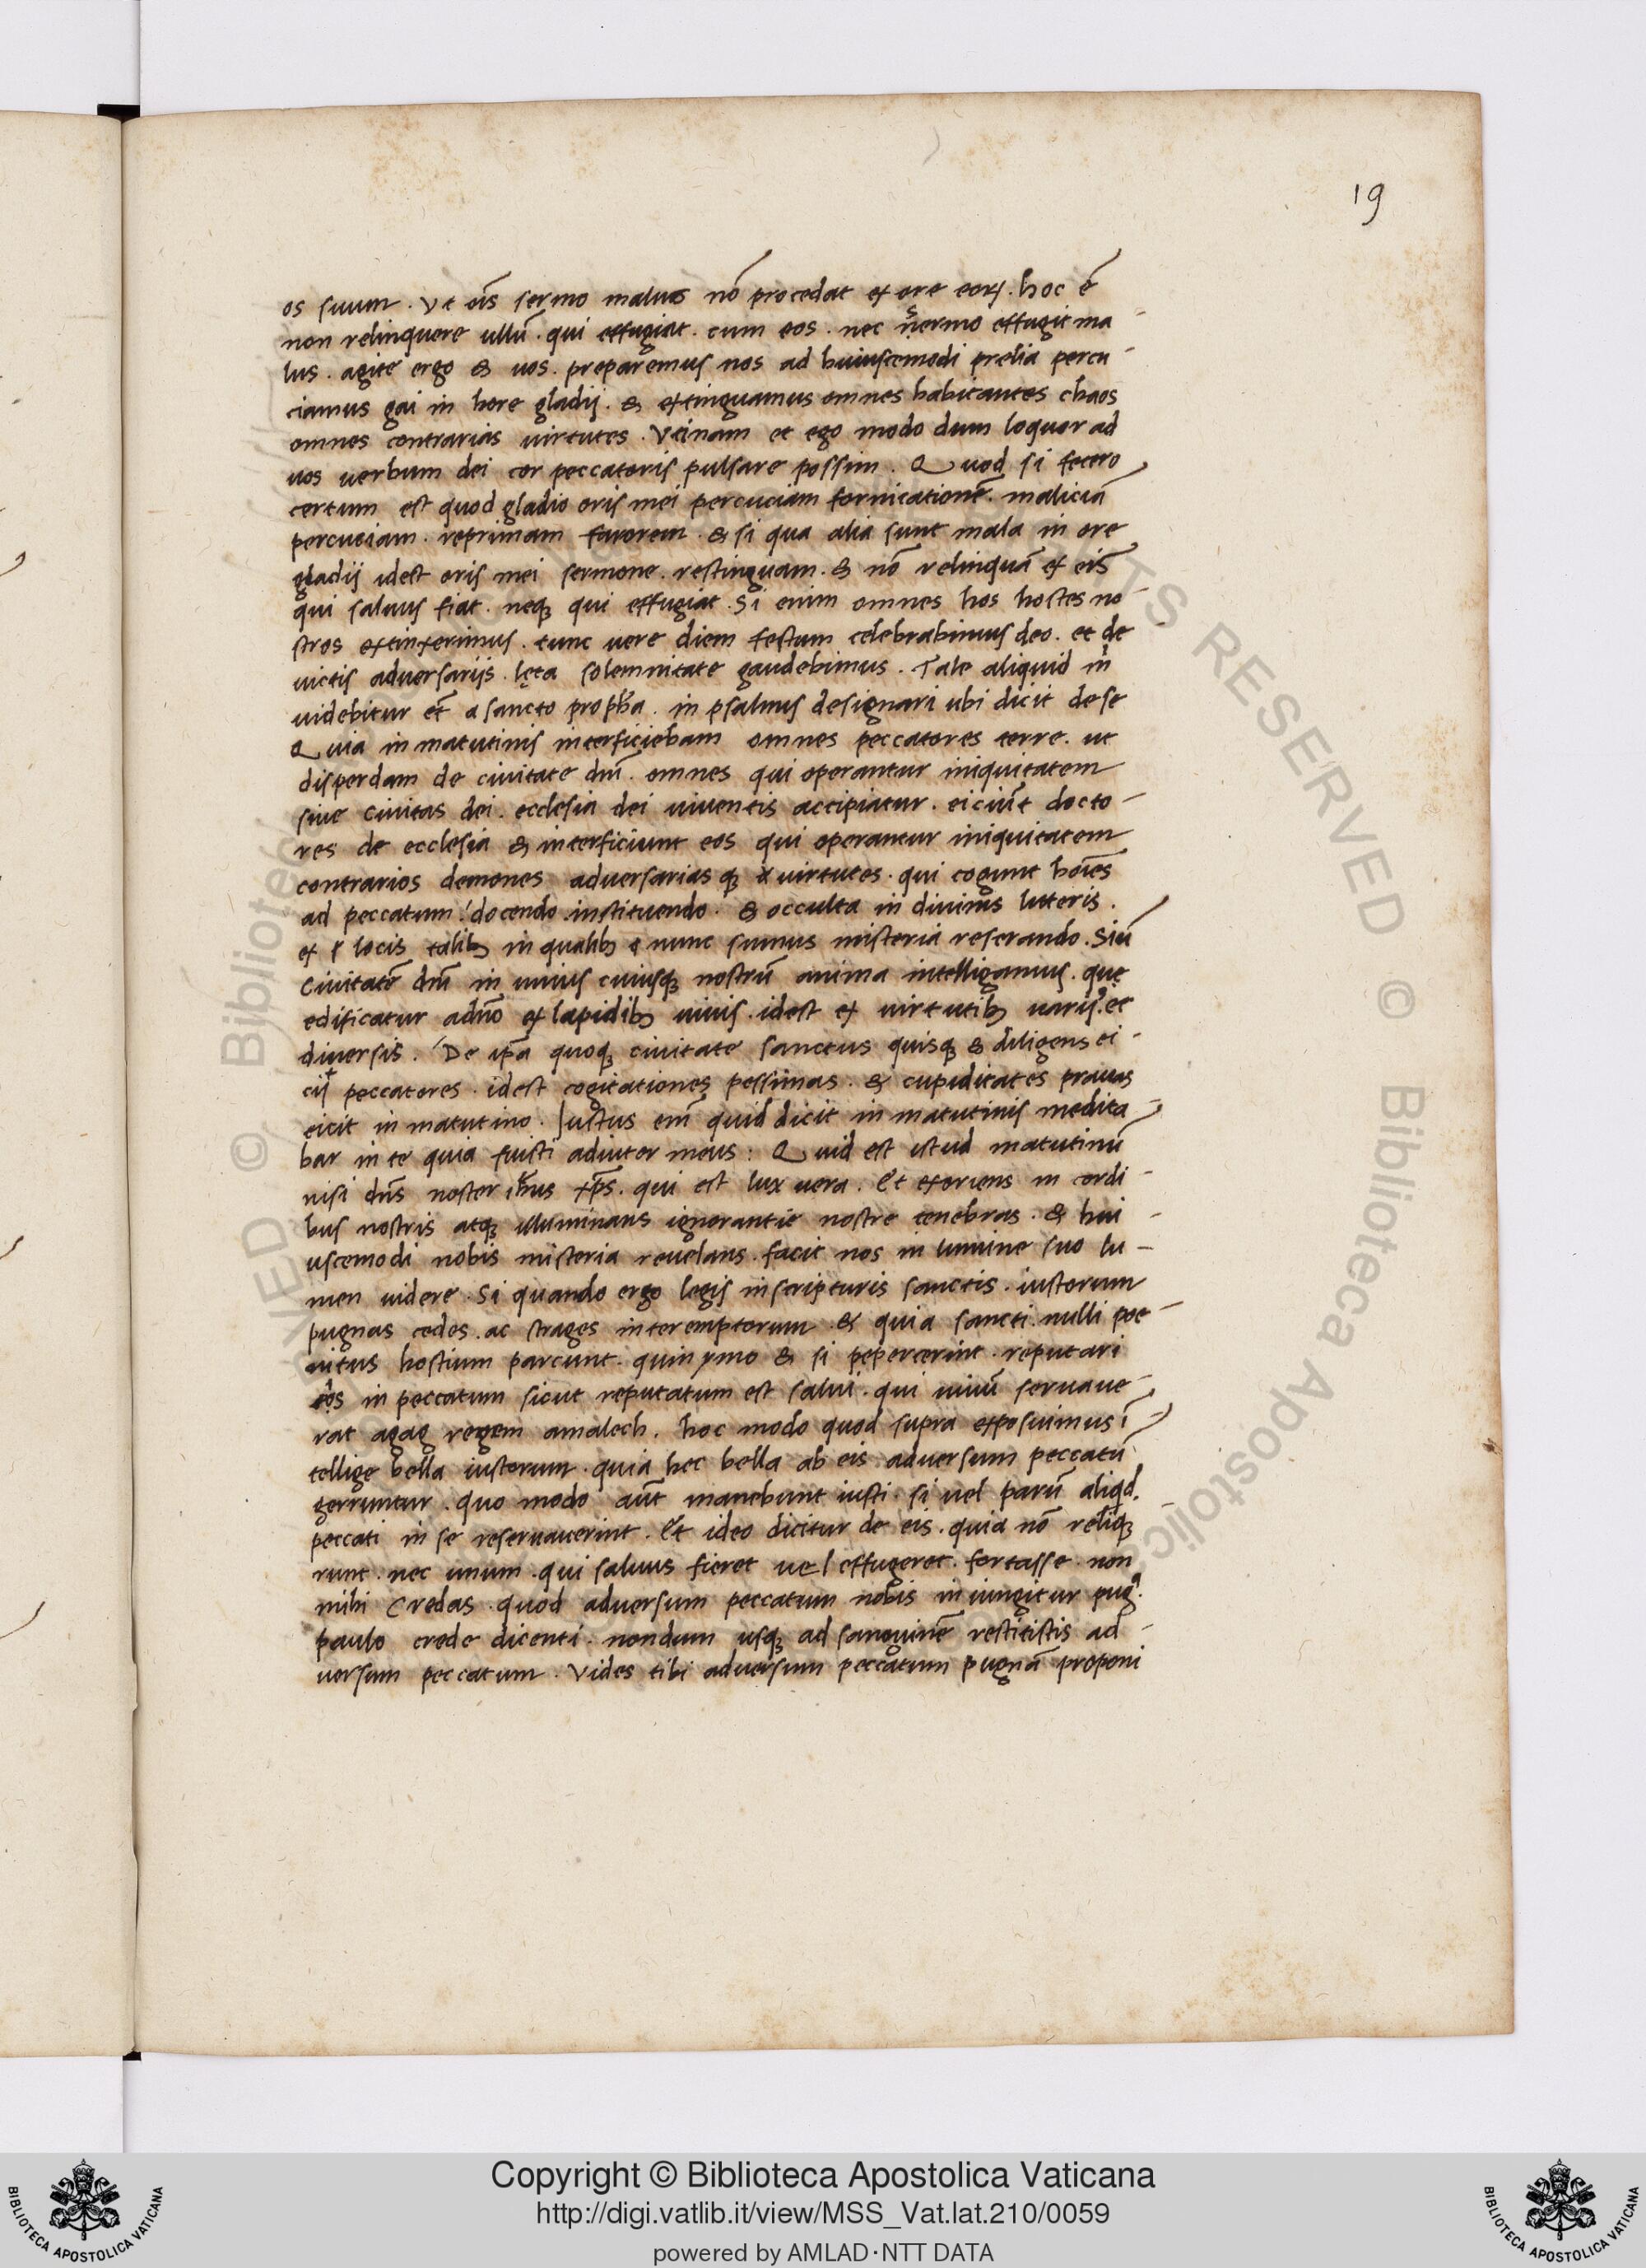 19
os suum . Vt oīs sermo malus nō procedat ex ore eoꝝ. hoc ē
non relinquere ullū . qui effugiat . cum eos . nec sermo effugit ma-
lus . agite ergo & uos . preparemus nos ad huiuscemodi prelia percu-
ciamus gai in hore gladij . & extinguamus omnes habitantes chaos
omnes contrarias uirtutes . Vtinam et ego modo dum loquor ad
uos uerbum dei cor peccatoris pulsare possim . Quod si fecero
certum est quod gladio oris mei percuciam fornicationē . maliciā
percuciam . reprimam furorem . & si qua alia sunt mala in ore
gladij idest oris mei sermone . restinguam . & nō relinquā ex eis
qui saluus fiat . neqꝫ qui effugiat . Si enim omnes hos hostes no-
stros extinxerimus . tunc uere diem festum celebrabimus deo . et de
uictis aduersarijs . lęta solemnitate gaudebimus . Tale aliquid m̄
uidebitur et̄ a sancto propħa . in psalmus designari ubi dicit de se
Quia in matutinis interficiebam omnes peccatores terre . ut
disperdam de ciuitate dn̄i . omnes qui operantur iniquitatem
siue Ciuitas dei . ecclesia dei uiuentis accipiatur . eiciūt docto-
res de ecclesia & interficiunt eos qui operantur iniquitatem
contrarios demones aduersarias qꝫ uirtutes . qui cogunt hoīes
ad peccatum : docendo . instituendo . & occulta in diuinis litteris .
ex locis talibꝫ in qualibꝫ nunc sumus misteria reserando . Siū
Ciuitatē dn̄i in unius cuiusqꝫ nostrū anima intelligamus . quę
edificatur adn̄o ex lapidibꝫ uiuis . idest ex uirtutibꝫ uarijs . et
diuersis . De ip̄a quoqꝫ ciuitate sanctus quisqꝫ & diligens ei-
cit peccatores . idest cogitationes pessimas . & cupiditates prauas
eicit in matutino . Iustus em̄ quid dicit in matutinis medita-
bar in te quia fuisti adiutor meus : Quid est istud matutinū
nisi dn̄s noster iħus xp̄s . qui est lux uera . Et exoriens in cordi-
bus nostris atqꝫ illuminans ignorantie nostre tenebras . & hui-
uscemodi nobis misteria reuelans . facit nos in lumine suo lu-
men uidere . Si quando ergo legis in scripturis sanctis . iustorum
pugnas cedes . ac strages interemptorum & quia sancti . nulli poe-
nitus hostium parcunt . quin ymo & si pepercerint . reputari
eos in peccatum sicut reputatum est salui . qui uiuū seruaue-
rat agag regem amalech . hoc modo quod supra exposuimus ī-
tellige bella iustorum . quia hec bella ab eis aduersum peccatū
gerruntur . quo modo aūt manebunt iusti . si uel parū aliqd .
peccati in se reseruauerint . Et ideo dicitur de eis . quia nō reliqꝫ-
runt . nec unum . qui saluus fieret uel effugeret . fortasse non
mihi Credas . quod aduersum peccatum nobis iniungitur pug.
paulo crede dicenti . nondum usqꝫ ad sanguinē restitistis ad-
uersum peccatum . Vides tibi aduersum peccatum pugnā proponi
© Biblioteca Apostolica
RIGHTS RESERVED © Biblioteca Apostolica
BIBLIOTECA APOSTOLICA VATICANA
Copyright © Biblioteca Apostolica Vaticana
http://digi.vatlib.it/view/MSS_Vat.lat.210/0059
powered by AMLAD·NTT DATA
BIBLIOTECA APOSTOLICA VATICANA